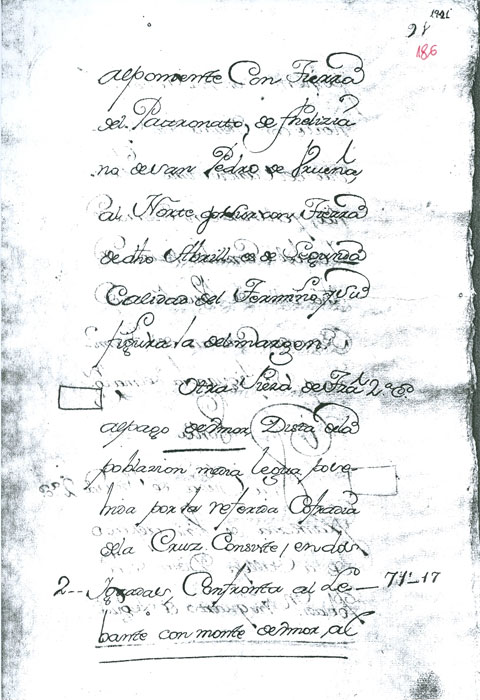 1921
21
186
alponiente Con Tierra
del Patronato, de
na de san Pedro de
al Norte y sur con Tierra
de dho Abrill es de Segunda
Calidad del Termino, y su
figura la del margen.
Otra Pieza de Tra 2ª
alpago de mor, Dista dela
poblazion media legua pose-
hida por la referida Cofradia
dela Cruz Consiste, en dos
2-- Jogadas, Confronta al Le- 71-17
bante con monte de mor, al